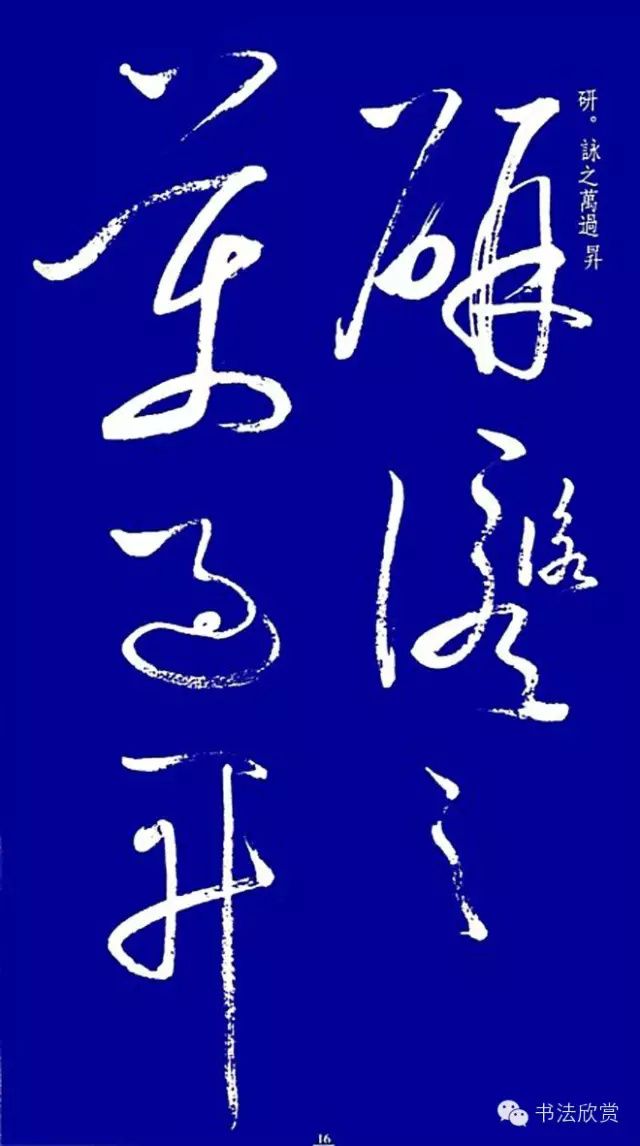 研。詠之萬過昇
研詠之
萬過昇
16
书法欣赏